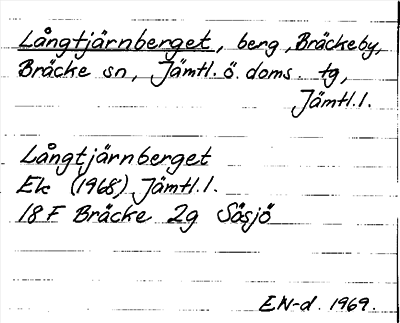 Långtjärnberget, berg, Bräckeby,
Bräcke sn, Jämtl. ö. doms. tg,
Jämtl.l.
Långtjärnberget
Ek (1968) Jämtl.l.
18 F Bräcke 2g Sösjö
EN-d. 1969.